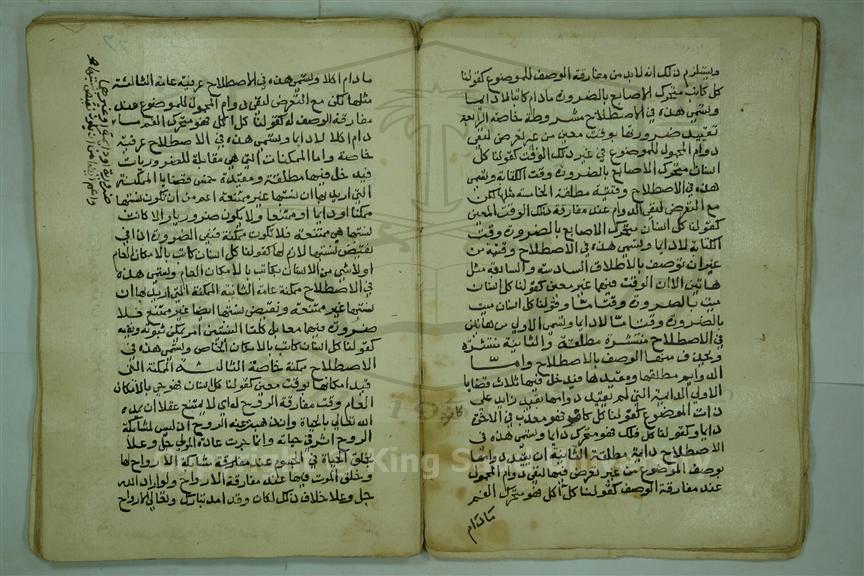 ويستلزم ذلك انه لا بد من مفارقة الوصف للموضوع كقولنا
كل كاتب متحرك الاصابع بالضرورة ما دام كاتبا لا دايما
وتسمى هذه في الاصطلاح مشروطة خاصة الرابعة
تقييد ضرورتها بوقت معين من غير تعرض لنفي
دوام المحمول للموضوع في غير ذلك الوقت كقولنا كل
انسان متحرك الاصابع بالضرورة وقت الكتابة وتسمى
هذه في الاصطلاح وقتية مطلقة الخامسة مثلها لكن
مع التعرض لنفي الدوام عند مفارقة ذلك الوقت المعين
كقولنا كل انسان متحرك الاصابع بالضرورة وقت
الكتابة لا دايما وتسمى هذه في الاصطلاح وقتية من
غير ان توصف بالاطلاق السادسة والسابعة مثل
هاتين الا ان الوقت فيهما غير معين كقولنا كل انسان
ميت بالضرورة وقتا ما وقولنا كل انسان ميت
بالضرورة وقتا ما لا دايما وتسمى الاولى من هاتين
في الاصطلاح منتشرة مطلقة والثانية منتشرة
ويحذف منها الوصف بالاصطلاح واما
الدوايم مطلقها ومقيدها فيدخل فيها ثلاث قضايا
الاولى الدايمة التي لم تقيد دوامها بقيد زايد على
ذات الموضوع كقولنا كل كافر فهو معذب في الاخرة
دايما وكقولنا كل فلك فهو متحرك دايما وتسمى هذه في
الاصطلاح دايمة مطلقة الثانية ان يقيد دوامها
بوصف الموضوع من غير تعرض فيها لنفي دوام المحمول
عند مفارقة الوصف كقولنا كل آكل فهو متحرك الفم
ما دام
ما دام اكلا وتسمى هذه في الاصطلاح عرفية عامة الثالثة
مثلها لكن مع التعرض لنفي دوام المحمول للموضوع عند
مفارقة الوصف له كقولنا كل آكل فهو متحرك الفم ما
دام اكلا لا دايما وتسمى هذه في الاصطلاح عرفية
خاصة واما الممكنات التي هي مقابلة للضروريات
فيدخل فيها مطلقة ومقيدة خمس قضايا الممكنة
التي اريد بها ان نسبتها غير ممتنعة اعم من ان تكون نسبتها
ممكنا او دايما او ممتنعا ولا يكون ضروريا والا كانت
نسبتها هي ممتنعة فلا تكون ممكنة فنفي الضرورة اذا في
نقيض نسبتها لازم لها كقولنا كل انسان كاتب بالامكان العام
او لا شي من الانسان بكاتب بالامكان العام وتسمى هذه
في الاصطلاح ممكنة عامة الثانية الممكنة التي اريد بها ان
نسبتها غير ممتنعة ونقيض نسبتها ايضا غير ممتنع فلا
ضرورة فيهما معا بل كلتا النسبتين امر يمكن ثبوته ونفيه
كقولنا كل انسان كاتب بالامكان الخاص وتسمى هذه في
الاصطلاح ممكنة خاصة الثالثة الممكنة التي
قيد امكانها بوقت معين كقولنا كل انسان فهو حي بالامكان
العام وقت مفارقة الروح له اي لا يمتنع عقلا ان يمده
الله تعالى بالحياة وان ذهبت عنه الروح اذ ليس لمشابكة
الروح اثر في حياته وانما جرت عادة المولى جل وعلا
بخلق الحياة في الجسوم عند مشابكة الارواح لها
وخلق الموت فيها عند مفارقة الارواح ولو اراد الله
جل وعلا خلاف ذلك لكان وقد امد تبارك وتعالى الارواح